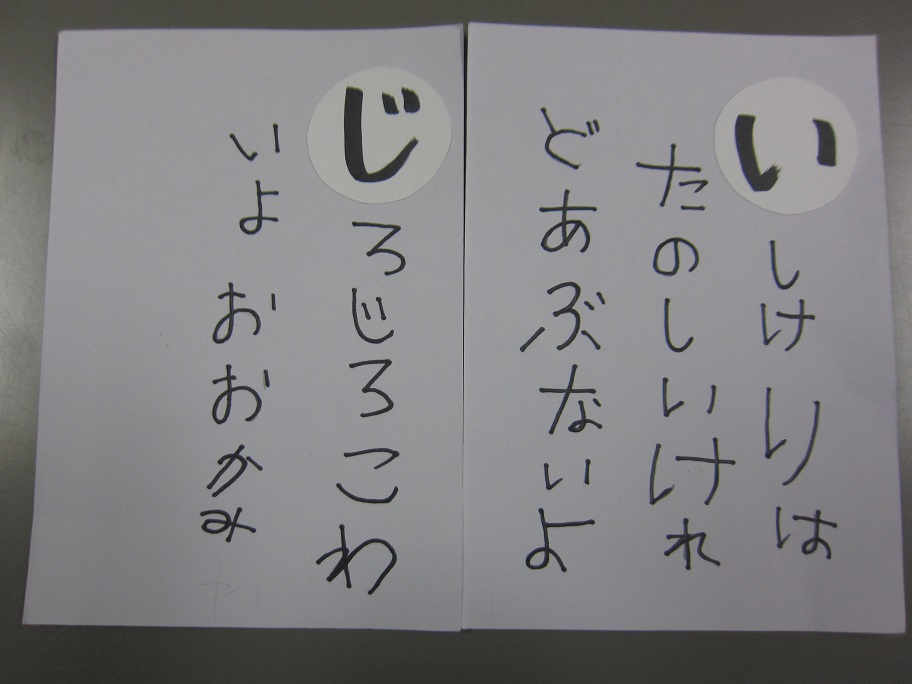 いしけりは
たのしいけれ
どあぶないよ
じろじろこわ
いよ おおかみ